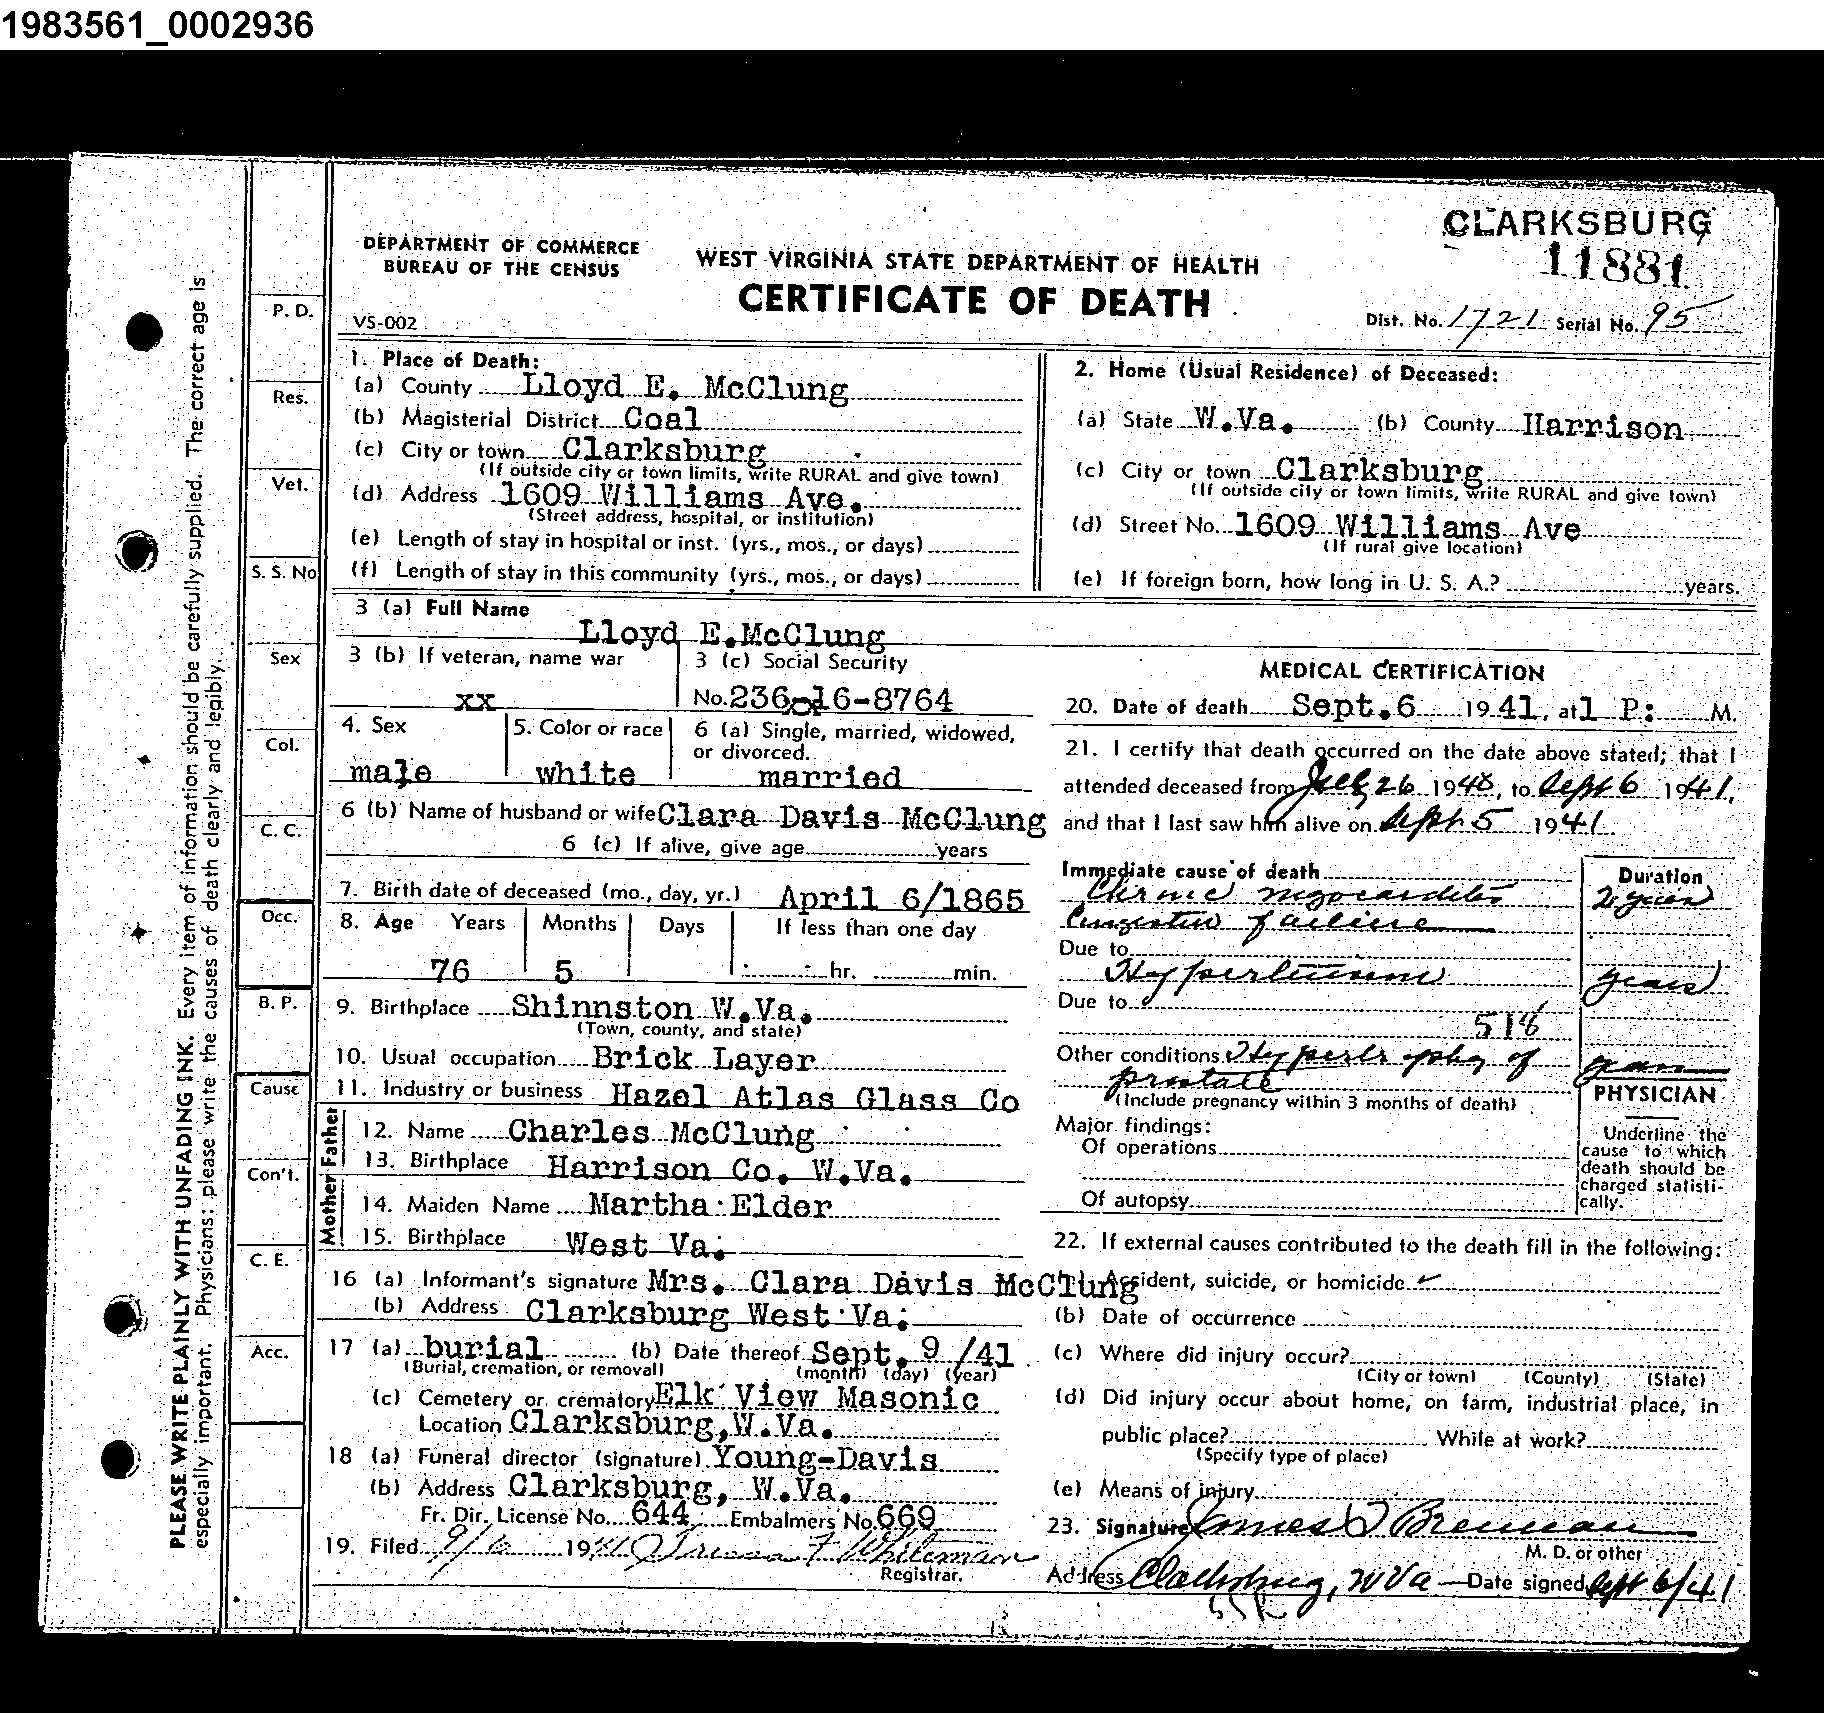 1983561_0002936
CLARKSBURG
11881
DEPARTMENT OF COMMERCE
BUREAU OF THE CENSUS
WEST VIRGINIA STATE DEPARTMENT OF HEALTH
CERTIFICATE OF DEATH
VS-002
Dist. No. 1721 Serial No. 95
PLEASE WRITE PLAINLY WITH UNFADING INK. Every item of information should be carefully supplied. The correct age is
especially important. Physicians: please write the causes of death clearly and legibly.
P. D.
Res.
Vet.
S. S. No
Sex
Col.
C. C.
Occ.
B. P.
Cause
Con't.
C. E.
Acc.
1. Place of Death:
(a) County Lloyd E. McClung
(b) Magisterial District Coal
(c) City or town Clarksburg
(If outside city or town limits, write RURAL and give town)
(d) Address 1609 Williams Ave.
(Street address, hospital, or institution)
(e) Length of stay in hospital or inst. (yrs., mos., or days)
(f) Length of stay in this community (yrs., mos., or days)
2. Home (Usual Residence) of Deceased:
(a) State W.Va. (b) County Harrison
(c) City or town Clarksburg
(If outside city or town limits, write RURAL and give town)
(d) Street No. 1609 Williams Ave
(If rural give location)
(e) If foreign born, how long in U. S. A.? years.
3 (a) Full Name
Lloyd E.McClung
3 (b) If veteran, name war
xx
3 (c) Social Security
No. 236-16-8764
4. Sex
male
5. Color or race
white
6 (a) Single, married, widowed,
or divorced.
married
6 (b) Name of husband or wife Clara Davis McClung
6 (c) If alive, give age years
7. Birth date of deceased (mo., day, yr.) April 6/1865
8. Age Years Months Days If less than one day
76 5 hr. min.
9. Birthplace Shinnston W.Va.
(Town, county, and state)
10. Usual occupation Brick Layer
11. Industry or business Hazel Atlas Glass Co
Father
12. Name Charles McClung
13. Birthplace Harrison Co. W.Va.
Mother
14. Maiden Name Martha Elder
15. Birthplace West Va.
16 (a) Informant's signature Mrs. Clara Davis McClung
(b) Address Clarksburg West Va.
17 (a) burial (b) Date thereof Sept. 9 /41
(Burial, cremation, or removal) (month) (day) (year)
(c) Cemetery or crematory Elk View Masonic
Location Clarksburg,W.Va.
18 (a) Funeral director (signature) Young-Davis
(b) Address Clarksburg, W.Va.
Fr. Dir. License No. 644 Embalmers No. 669
19. Filed 9/6 1941 F Whiteman
Registrar.
MEDICAL CERTIFICATION
20. Date of death Sept.6 1941, at 1 P: M.
21. I certify that death occurred on the date above stated; that I
attended deceased from 26 1940, to Sept 6 1941,
and that I last saw him alive on Sept. 5 1941
Immediate cause of death
Chronic myocarditis
Congestive failure
Due to
Hypertension
Due to
518
Other conditions Hypertrophy of
prostate
(Include pregnancy within 3 months of death)
Duration
2 years
years
years
PHYSICIAN
Underline the
cause to which
death should be
charged statisti-
cally.
Major findings:
Of operations
Of autopsy
22. If external causes contributed to the death fill in the following:
Accident, suicide, or homicide ✓
(b) Date of occurrence
(c) Where did injury occur?
(City or town) (County) (State)
(d) Did injury occur about home, on farm, industrial place, in
public place? While at work?
(Specify type of place)
(e) Means of injury
23. Signature James Brennan
M. D. or other
Address Clarksburg, W Va Date signed Sept 6/41